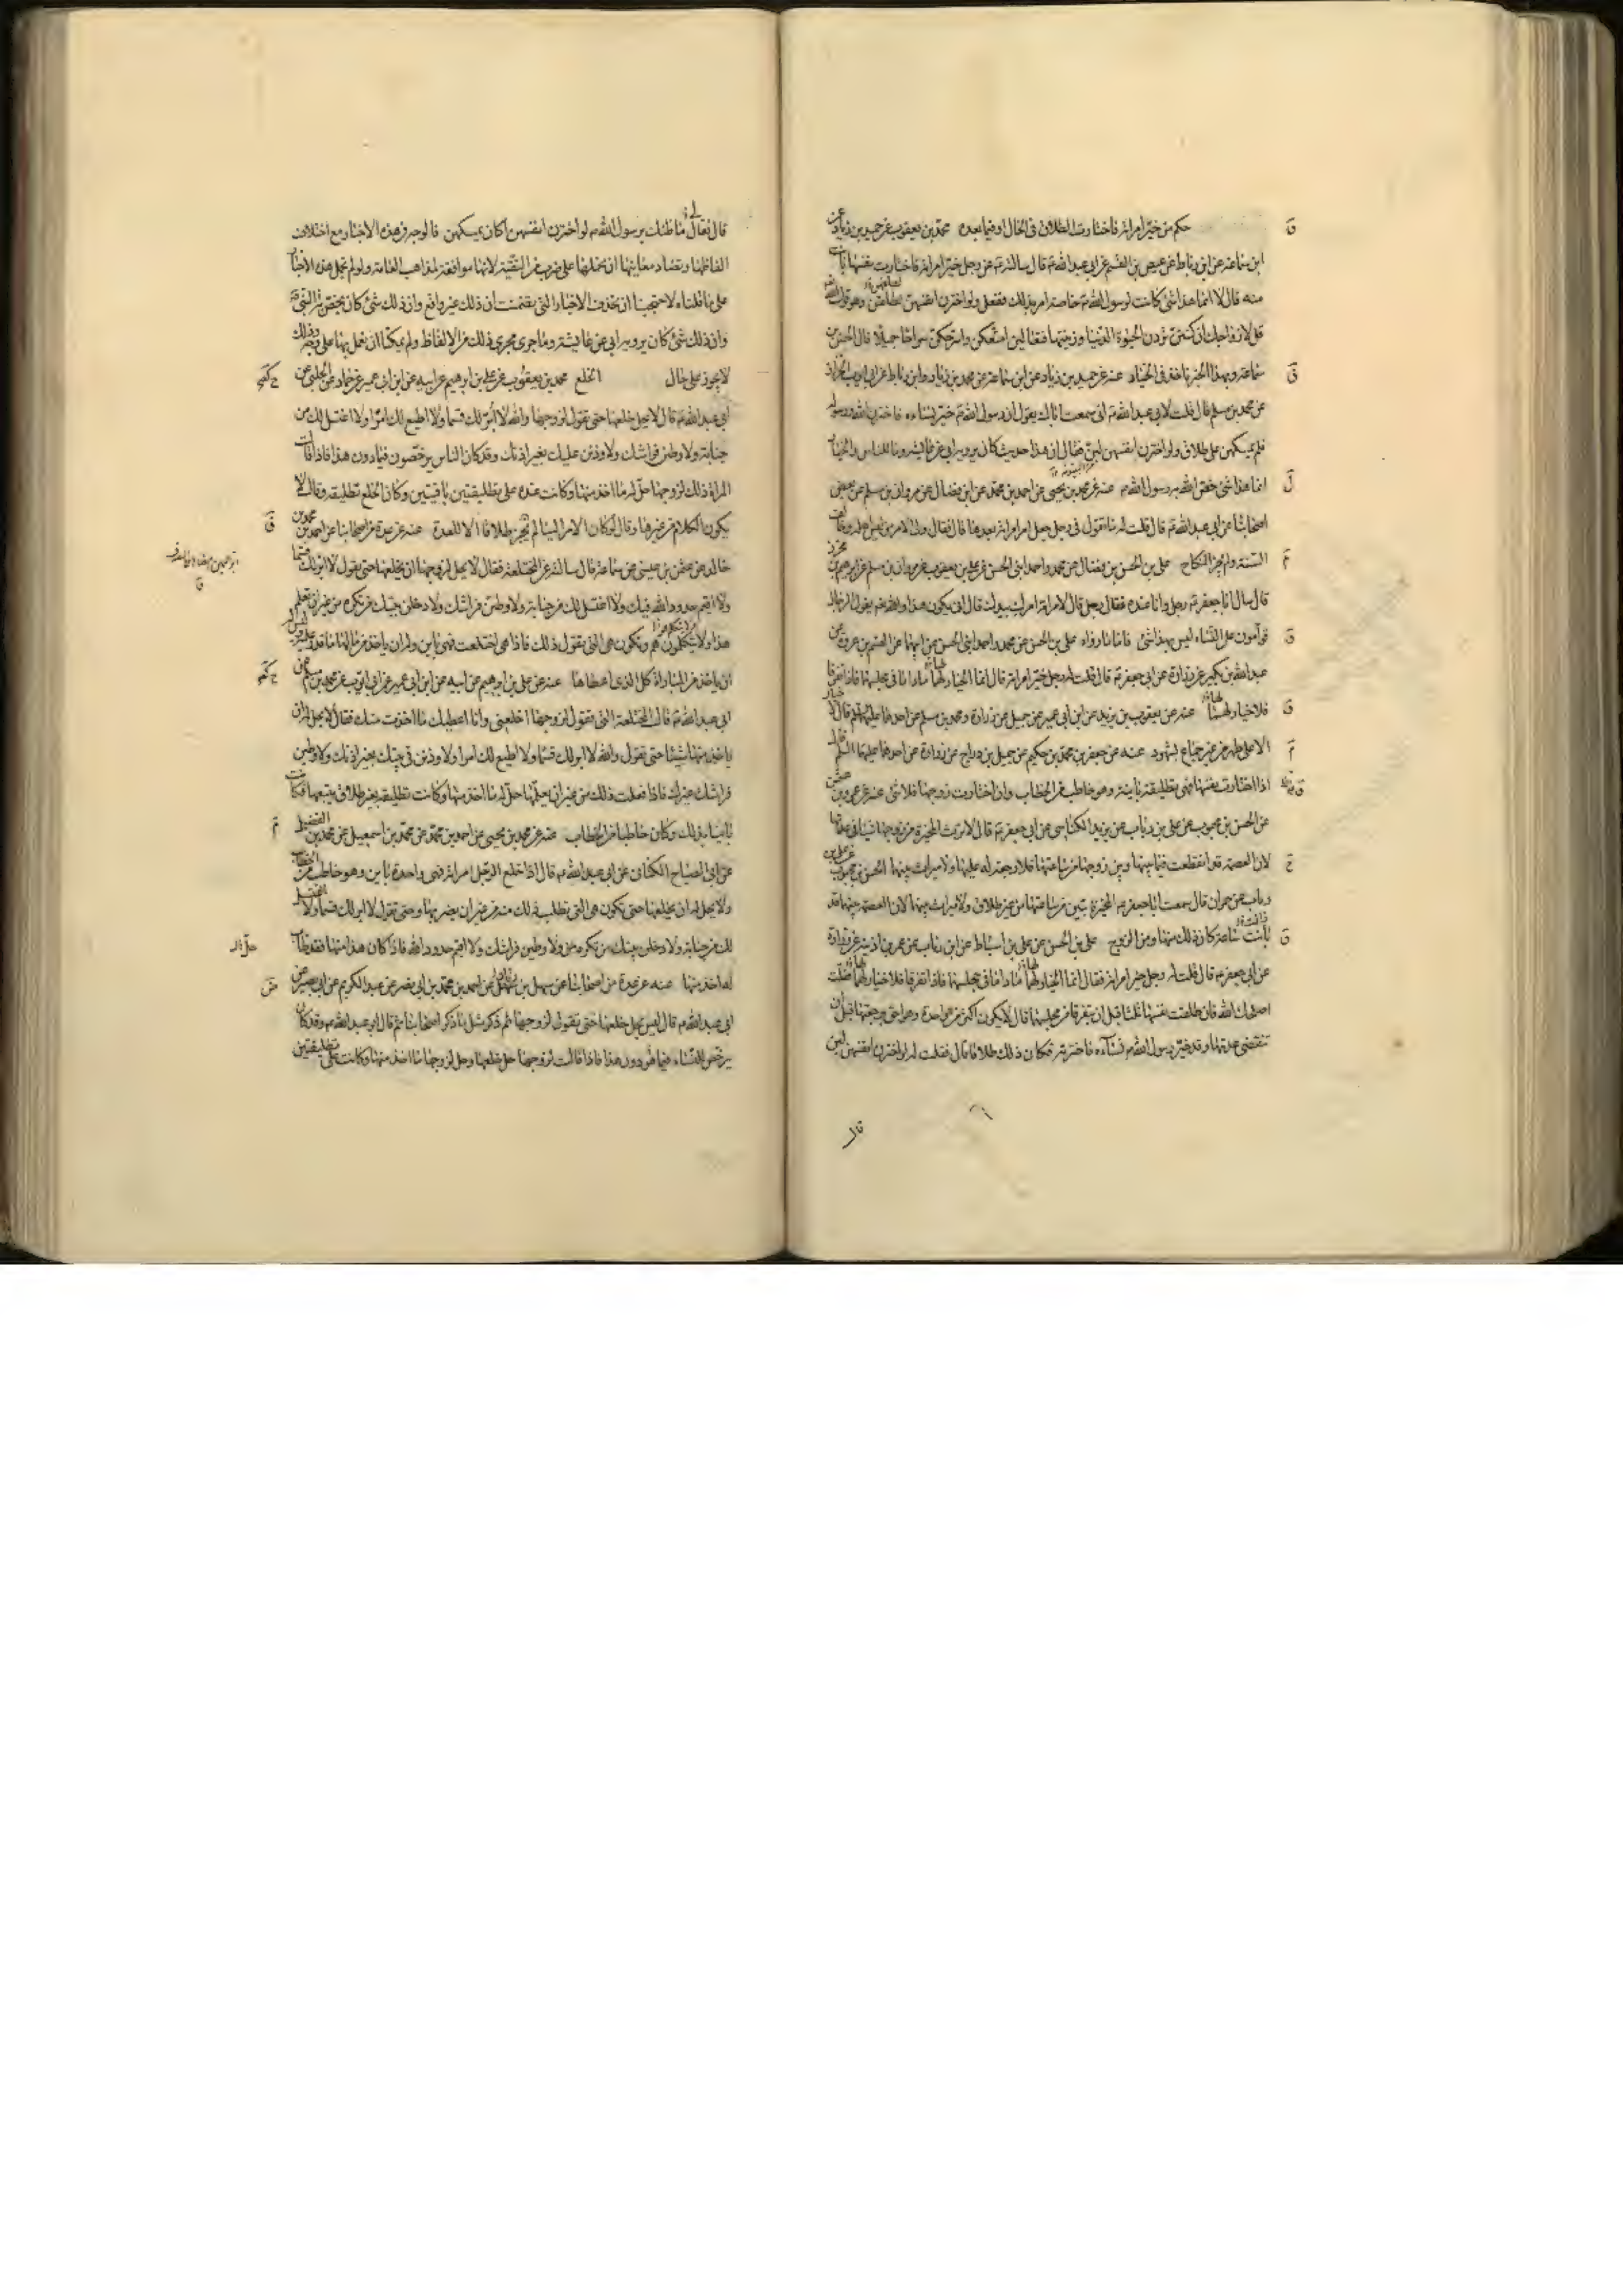 حكم من خيّر امراته فاختارت الطلاق فى الحال او فيما بعده محمد بن يعقوب عن حميد بن زياد عن
ابن سماعة عن ابن رباط عن عيص بن القسم عن ابى عبد الله ع قال سالته عن رجل خيّر امراته فاختارت نفسها بانت
منه قال لا انما هذا شئ كانت لرسول الله ص خاصة امر بذلك ففعل ولو اخترن انفسهن لطلقهن وهو قول الله
قل لازواجك ان كنتن تردن الحيوة الدنيا وزينتها فتعالين امتعكن واسرحكن سراحا جميلا قال الحسن بن
سماعة وبهذا الخبر ناخذ فى الخيار عنه عن حميد بن زياد عن ابن سماعة عن محمد بن زياد وابن رباط عن ابى ايوب الخزاز
عن محمد بن مسلم قال قلت لابى عبد الله ع انى سمعت اباك يقول ان رسول الله ص خير نساءه فاخترن الله ورسوله
فلم يمسكهن على طلاق ولو اخترن انفسهن لبنّ فقال ان هذا حديث كان يرويه ابى عن عايشة وما للناس والخيار
انما هذا شئ خص الله به رسول الله ص عنه عن محمد بن يحيى عن احمد بن محمد عن ابن فضال عن مروان بن مسلم عن بعض
اصحابنا عن ابى عبد الله ع قال قلت له ما تقول فى رجل جعل امر امراته بيدها قال فقال ولى الامر من ليس اهله وخالف
السنة ولم يجز النكاح على بن الحسن بن فضال عن محمد واحمد ابنى الحسن عن على بن يعقوب عن مروان بن مسلم عن ابرهيم بن محرز
قال سال ابا جعفر ع رجل وانا عنده فقال رجل قال لامراته امرك بيدك قال انى يكون هذا والله تع يقول الرجال
قوامون على النساء ليس هذا بشئ فاما ما رواه على بن الحسن عن محمد واحمد ابنى الحسن عن ابيهما عن القسم بن عروة عن
عبد الله بن بكير عن زرارة عن ابى جعفر ع قال قلت له رجل خيّر امراته قال انما الخيار لهما ما داما فى مجلسهما فاذا تفرقا
فلا خيار لهما عنه عن يعقوب بن يزيد عن ابن ابى عمير عن جميل عن زرارة ومحمد بن مسلم عن احدهما عليهما السلم قال لا خيار
الا على طهر من غير جماع بشهود عنه عن جعفر بن محمد بن حكيم عن جميل بن دراج عن زرارة عن احدهما عليهما السلم قال
اذا اختارت نفسها فهى تطليقة باينة وهو خاطب من الخطاب وان اختارت زوجها فلا شئ عنه عن عمرو بن عثمن
عن الحسن بن محبوب عن على بن رئاب عن يزيد الكناسى عن ابى جعفر ع قال لا ترث المخيرة من زوجها شيئا فى عدتها
لان العصمة قد انقطعت فيما بينها وبين زوجها من ساعتها فلا رجعة له عليها ولا ميراث بينهما الحسن بن محبوب عن على بن
رئاب عن حمران قال سمعت ابا جعفر ع المخيرة تبين من ساعتها من غير طلاق ولا ميراث بينهما لان العصمة بينهما قد
بانت ساعة كان ذلك منها ومن الزوج على بن الحسن عن على بن اسباط عن ابن رئاب عن عمر بن اذينة عن زرارة
عن ابى جعفر ع قال قلت له رجل خير امراته فقال انما الخيار لهما ما داما فى مجلسهما فاذا تفرقا فلا خيار لهما فقلت
اصلحك الله فان طلقت نفسها ثلثا قبل ان يتفرقا من مجلسهما قال لا يكون اكثر من واحدة وهو احق برجعتها قبل ان
تنقضى عدتها وقد خير رسول الله ص نساءه فاخترنه فكان ذلك طلاقا قال فقلت له لو اخترن انفسهن لبن
قال
قال فقال لى ما ظنك برسول الله ص لو اخترن انفسهن اكان يمسكهن فالوجه فى هذه الاخبار مع اختلاف
الفاظها وتضاد معانيها ان نحملها على ضرب من التقية لانها موافقة لمذاهب العامة ولو لم نحمل هذه الاخبار
على ما قلناه لاحتجنا ان نحذف الاخبار التى تضمنت ان ذلك غير واقع وان ذلك شئ كان يختص به النبى ص
وان ذلك شئ كان يرويه ابى عن عايشة وما جرى مجرى ذلك من الالفاظ ولم يمكنا ان نعمل بها على وجه وذلك
لا يجوز على حال الخلع محمد بن يعقوب عن على بن ابرهيم عن ابيه عن ابن ابى عمير عن حماد عن الحلبى عن
ابى عبد الله ع قال لا يحل خلعها حتى تقول لزوجها والله لا ابر لك قسما ولا اطيع لك امرا ولا اغتسل لك من
جنابة ولاوطئن فراشك ولاوذنن عليك بغير اذنك وقد كان الناس يرخصون فيما دون هذا فاذا قالت
المراة ذلك لزوجها حل له ما اخذ منها وكانت عنده على تطليقتين باقيتين وكان الخلع تطليقة وقال لا
يكون الكلام من غيرها وقال لو كان الامر الينا لم نجز طلاقا الا للعدة عنه عن عدة من اصحابنا عن احمد بن محمد بن
خالد عن عثمن بن عيسى عن سماعة قال سالته عن المختلعة فقال لا يحل لزوجها ان يخلعها حتى تقول لا ابر لك قسما
ولا اقيم حدود الله فيك ولا اغتسل لك من جنابة ولاوطئن فراشك ولادخلن بيتك من تكره من غير ان تعلم
هذا ولا يتكلمون هم وتكون هى التى تقول ذلك فاذا هى اختلعت فهى باين وله ان ياخذ من مالها ما قدر عليه وليس له
ان ياخذ من المباراة كل الذى اعطاها عنه عن على بن ابرهيم عن ابيه عن ابن ابى عمير عن ابى ايوب عن محمد بن مسلم عن
ابى عبد الله ع قال المختلعة التى تقول لزوجها اخلعنى وانا اعطيك ما اخذت منك فقال لا يحل له ان
ياخذ منها شيئا حتى تقول والله لا ابر لك قسما ولا اطيع لك امرا ولاوذنن فى بيتك بغير اذنك ولاوطئن
فراشك غيرك فاذا فعلت ذلك من غير ان يعلمها حل له ما اخذ منها وكانت تطليقة بغير طلاق يتبعها فكانت
باينا بذلك وكان خاطبا من الخطاب عنه عن محمد بن يحيى عن احمد بن محمد عن محمد بن اسمعيل عن محمد بن الفضيل
عن ابى الصباح الكنانى عن ابى عبد الله ع قال اذا خلع الرجل امراته فهى واحدة باين وهو خاطب من الخطاب
ولا يحل له ان يخلعها حتى تكون هى التى تطلب ذلك منه من غير ان يضر بها وحتى تقول لا ابر لك قسما ولا اغتسل
لك من جنابة ولادخلن بيتك من تكره ولاوطئن فراشك ولا اقيم حدود الله فاذا كان هذا منها فقد طاب
له ما اخذ منها عنه عن عدة من اصحابنا عن سهل بن زياد عن احمد بن محمد بن ابى نصر عن عبد الكريم عن ابى بصير عن
ابى عبد الله ع قال ليس يحل خلعها حتى تقول لزوجها ثم ذكر مثل ما ذكر اصحابنا ثم قال ابو عبد الله ع وقد كان
يرخص للنساء فيما هو دون هذا فاذا قالت لزوجها حل خلعها وحل لزوجها ما اخذ منها وكانت على تطليقتين